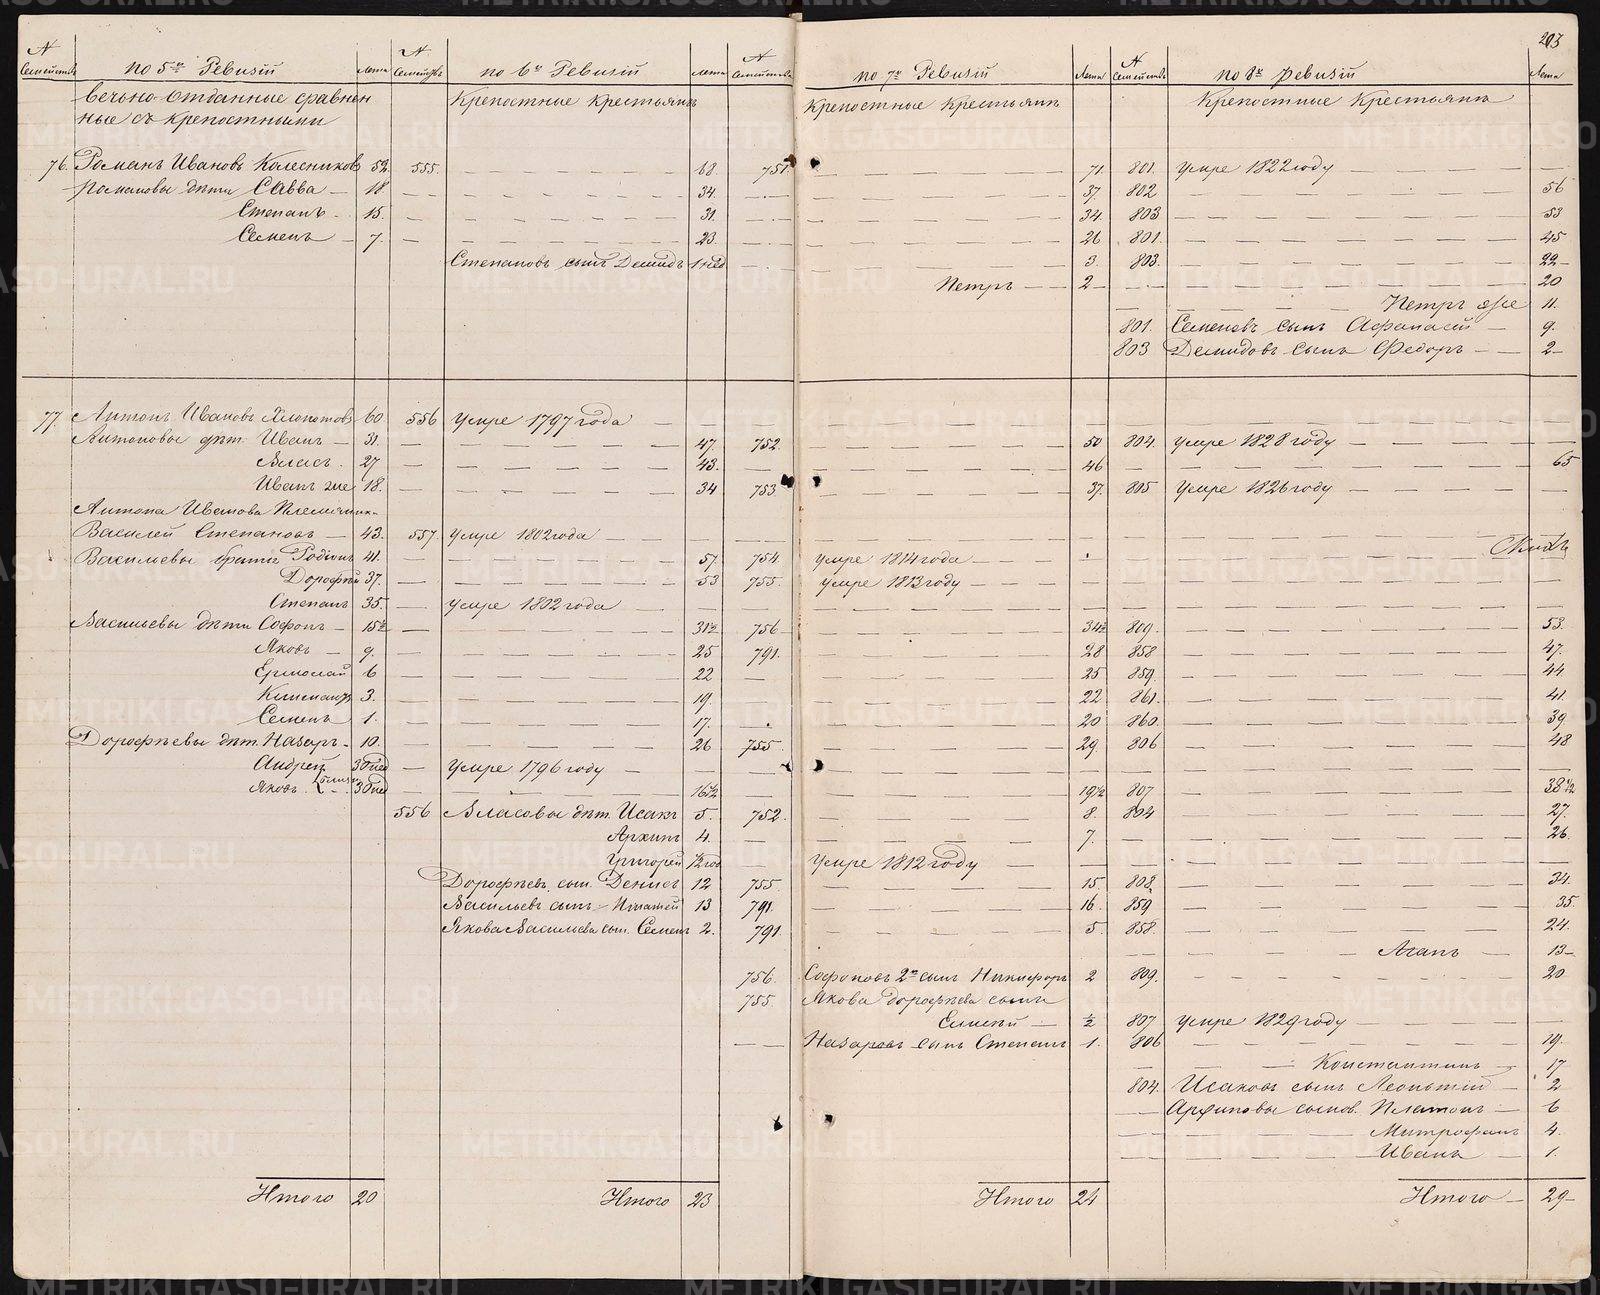 203
№ Семействъ по 5й Ревизiи Лета № Семействъ по 6й Ревизiи Лета № Семействъ по 7й Ревизiи Лета № Семействъ по 8й Ревизiи Лета
вечьно-отданные сравнен Крепостные крестьяне Крепостные крестьяне Крепостные Крестьяне
ные съ крепостными
76. Романъ Ивановъ Колесниковъ 52. 555. 68. 751. 71. 801. умре 1822 году
Романовы дети Савва 18. 34. 37. 802 56
Степанъ 15. 31. 34. 803 53
Семенъ 7. 23. 26 801. 45
Степановъ сынъ Демидъ 1 нед 3. 803. 22
Петръ 2 20
Петръ же 11.
801. Семеновъ сынъ Афанасiй 9.
803 Демидовъ сынъ Федоръ 2
77. Антонъ Ивановъ Хлопотовъ 60 556 умре 1797 года
Антоновы дет. Иванъ 31. 47. 752. 50 804. умре 1828 году
Власъ. 27 43. 46 65
Иванъ же 18. 34 753 37. 805 умре 1826 году
Антона Иванова Племянник
Василей Степановъ 43. 557. умре 1802 года
Васильевы братьи Родiонъ 41. 57. 754. умре 1814 года
Дорофей 37. 53 755. умре 1813 году
Степанъ 35. умре 1802 года
Васильевы дети Софонъ 15½ 31½ 756 34½ 809. 53.
Яковъ 9. 25 791. 28 858 47.
Ермолай 6 22 25 859. 44
Климантъ 3. 19. 22 861. 41.
Семенъ 1. 17. 20 860. 39.
Дорофеевы дет. Назаръ 10. 26 755. 29. 806 48
Андрей 30 нед умре 1796 году
Яковъ близн 30 нед 16½ 19½ 807 38½
556 Власовы дет. Исакъ 5. 752. 8. 804 27.
Архипъ 4. 7. 26.
Григорей ½ год умре 1812 году
Дорофеевъ сын. Денисъ 12 755. 15. 808. 34.
Васильевъ сынъ Игнатей 13 791. 16. 859 35.
Якова Васильева сын. Семенъ 2. 791. 5. 858. 24.
Агапъ 13
756. Софоновъ 2й сынъ Никифоръ 2 809. 20
755. Якова Дорофеева сынъ
Елисей ½ 807 умре 1829 году
Назаровъ сынъ Степанъ 1. 806 19.
Константинъ 17
804. Исаковъ сынъ Леонтiй 2
Архиповы сынов. Платонъ 6
Митрофанъ 4.
Иванъ 1.
Итого 20 Итого 23 Итого 24 Итого 29
METRIKI.GASO-URAL.RU